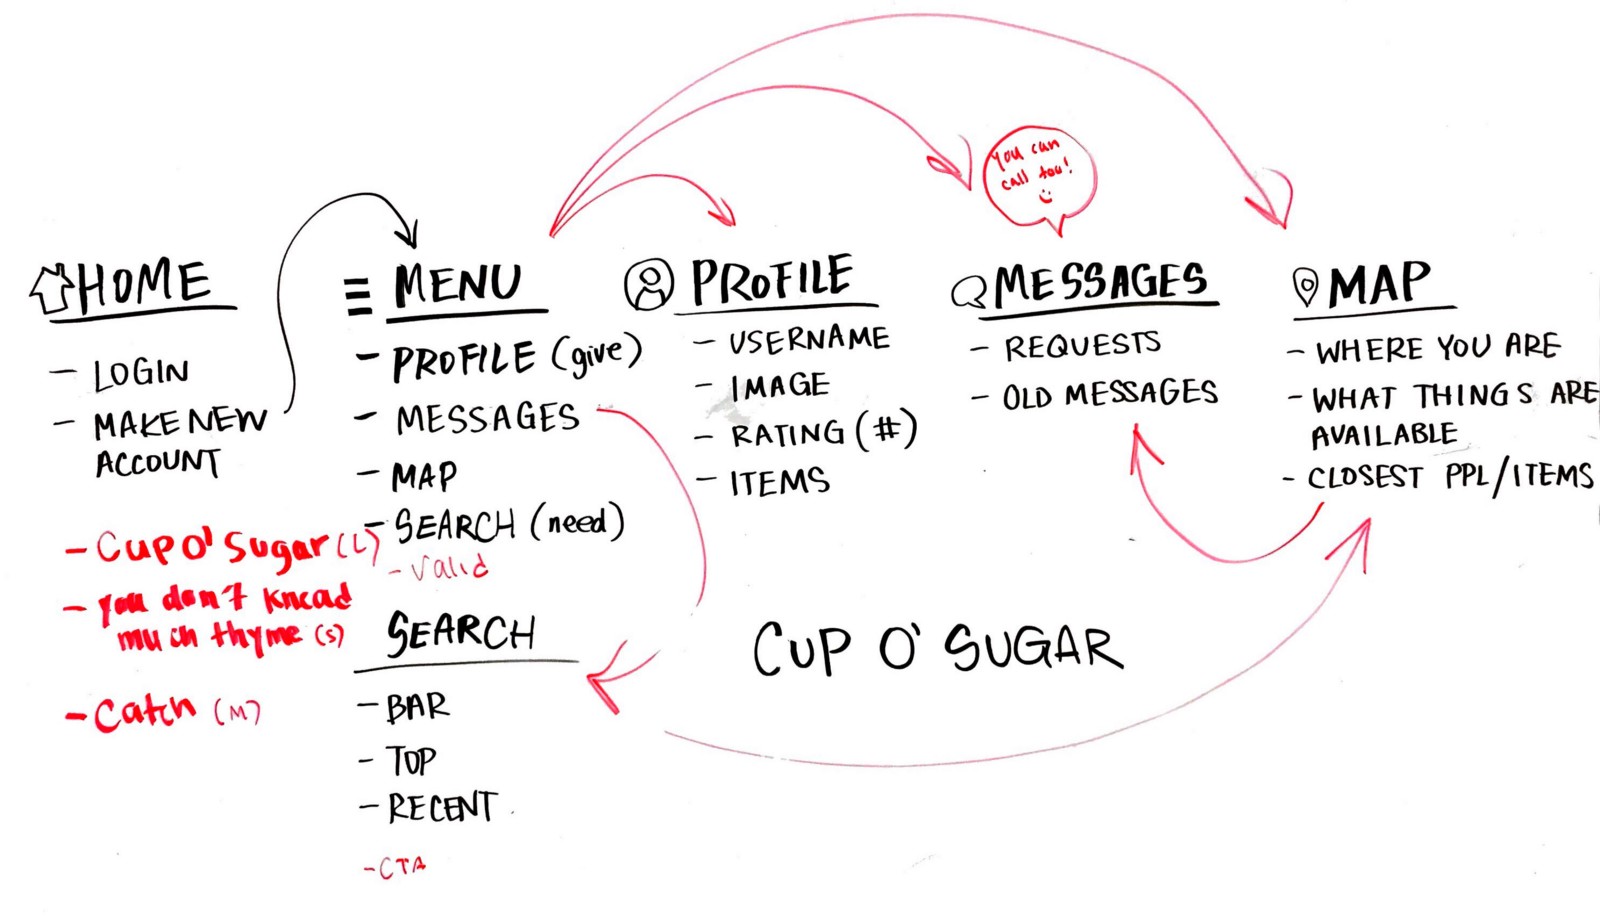 HOME
- LOGIN
- MAKE NEW
ACCOUNT
- Cup O' Sugar (L)
- you don't knead
much thyme (s)
- Catch (M)
MENU
- PROFILE (give)
- MESSAGES
- MAP
- SEARCH (need)
- Valid
SEARCH
- BAR
- TOP
- RECENT
- CTA
PROFILE
- USERNAME
- IMAGE
- RATING (#)
- ITEMS
You can
call too!
MESSAGES
- REQUESTS
- OLD MESSAGES
MAP
- WHERE YOU ARE
- WHAT THINGS ARE
AVAILABLE
- CLOSEST PPL/ITEMS
CUP O' SUGAR